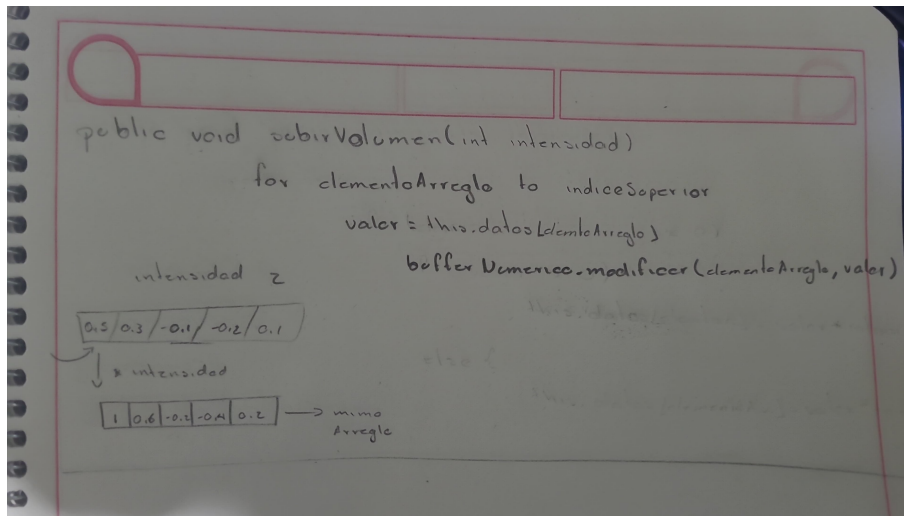 public void subirVolumen(int intensidad)
for elementoArreglo to indiceSuperior
valor = this.datos[elemtoArreglo]
bufferNumerico.modificar(elementoArreglo, valor)
intensidad 2
0.5 / 0.3 / -0.1 / -0.2 / 0.1
* intensidad
1 | 0.6 | -0.2 | -0.4 | 0.2 → mimo
Arreglo